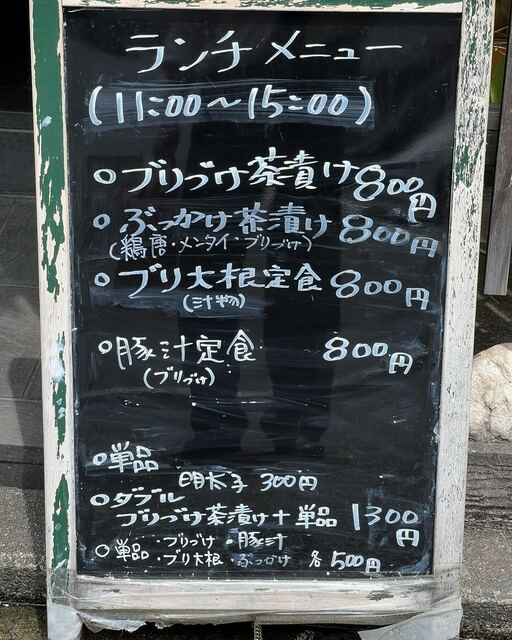 ランチメニュー
(11:00〜15:00)
○ブリづけ茶漬け 800円
○ぶっかけ茶漬け 800円
(鶏唐・メンタイ・ブリづけ)
○ブリ大根定食 800円
(汁物)
○豚汁定食 800円
(ブリづけ)
○単品
明太子 300円
○ダブル
ブリづけ茶漬け+単品 1300円
○単品 ・ブリづけ ・豚汁
・ブリ大根 ・ぶっかけ 各500円